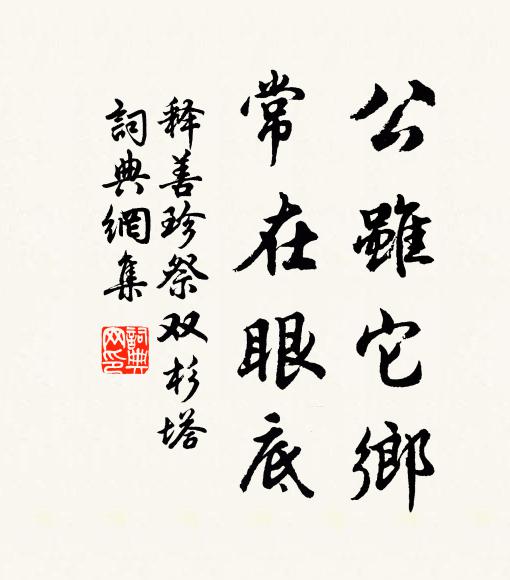 公雖它鄉
常在眼底
释善珍祭双杉塔
詞典網集
詞典網印